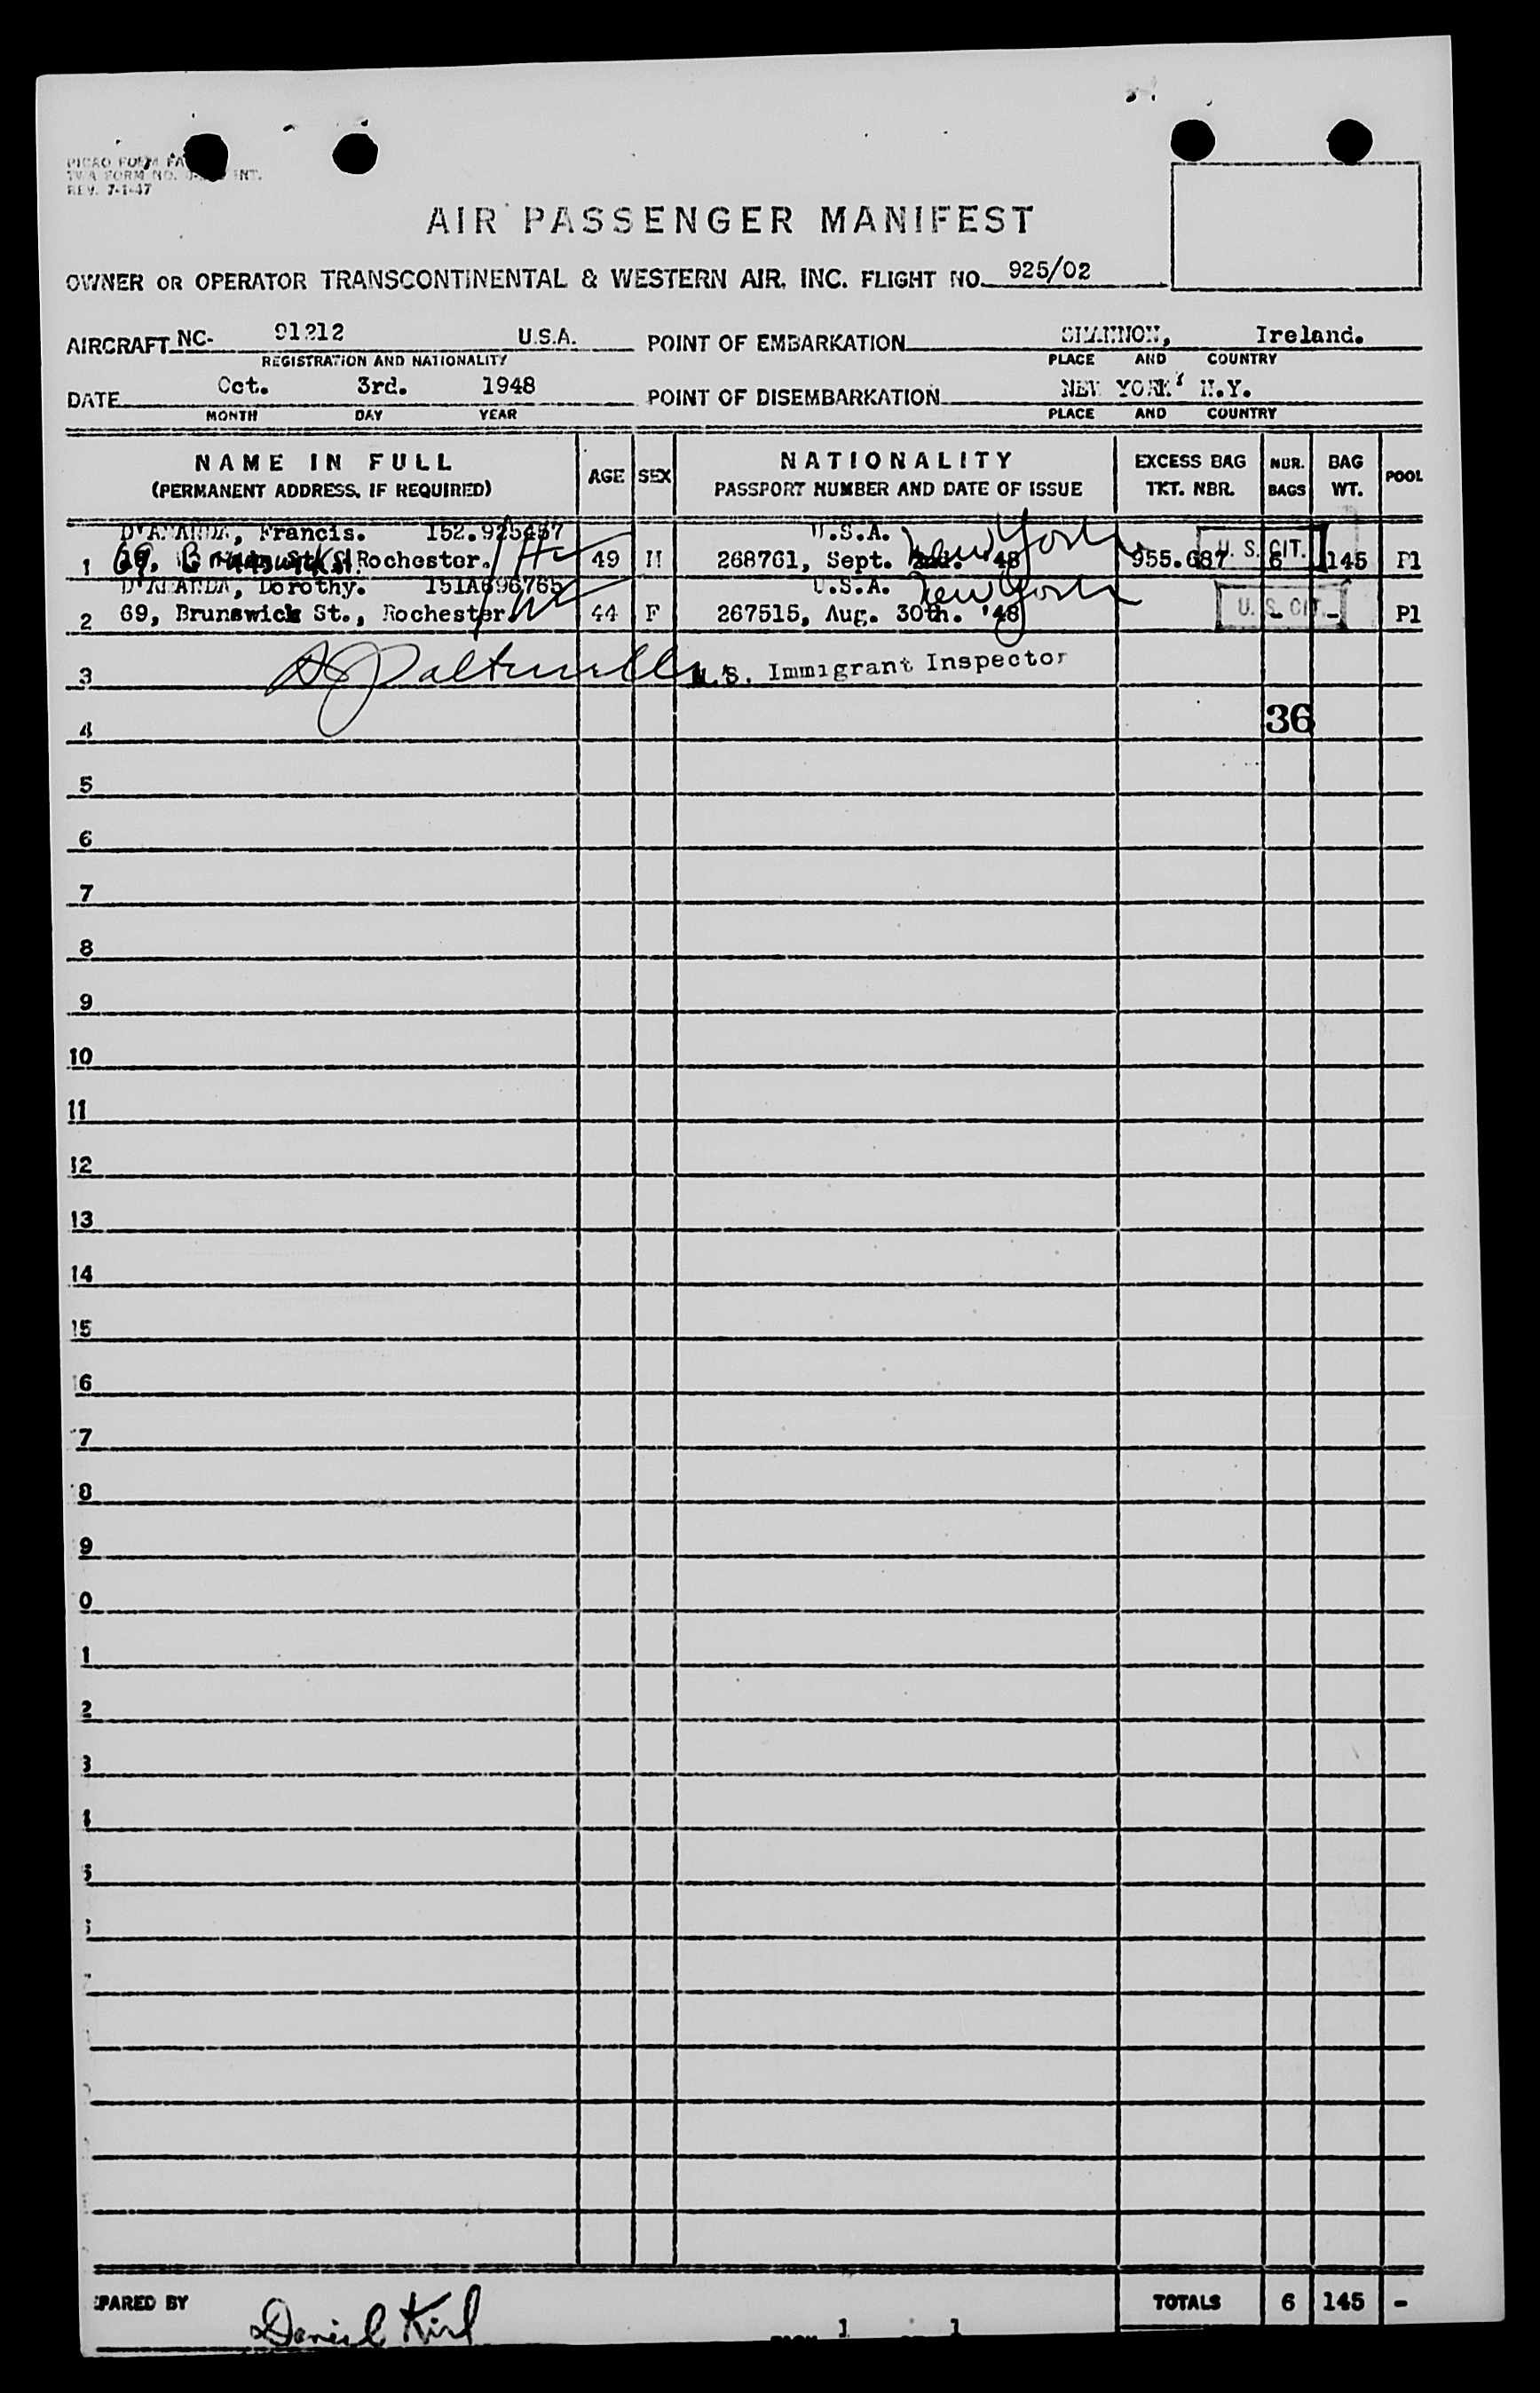 PICAO FORM
TWA FORM NO. INT.
REV. 7-1-47
AIR PASSENGER MANIFEST
OWNER OR OPERATOR TRANSCONTINENTAL & WESTERN AIR, INC. FLIGHT NO. 925/02
AIRCRAFT NC- 91212 U.S.A. POINT OF EMBARKATION SHANNON, Ireland.
REGISTRATION AND NATIONALITY PLACE AND COUNTRY
DATE Oct. 3rd. 1948 POINT OF DISEMBARKATION NEW YORK, N.Y.
MONTH DAY YEAR PLACE AND COUNTRY
NAME IN FULL AGE SEX NATIONALITY EXCESS BAG NBR. BAG POOL
(PERMANENT ADDRESS, IF REQUIRED) PASSPORT NUMBER AND DATE OF ISSUE TKT. NBR. BAGS WT.
D'AMANDA, Francis. 152.925457 U.S.A. New York
1 69, Brunswick St Rochester. 49 M 268761, Sept. '48 955.687 U. S. CIT. 6 145 P1
D'AMANDA, Dorothy. 151A696765 U.S.A. New York
2 69, Brunswick St., Rochester 44 F 267515, Aug. 30th. '48 U. S. CIT. - - P1
3 U.S. Immigrant Inspector
4 36
5
6
7
8
9
10
11
12
13
14
15
6
7
8
9
0
1
2
3
PARED BY Daniel TOTALS 6 145 -
1 1